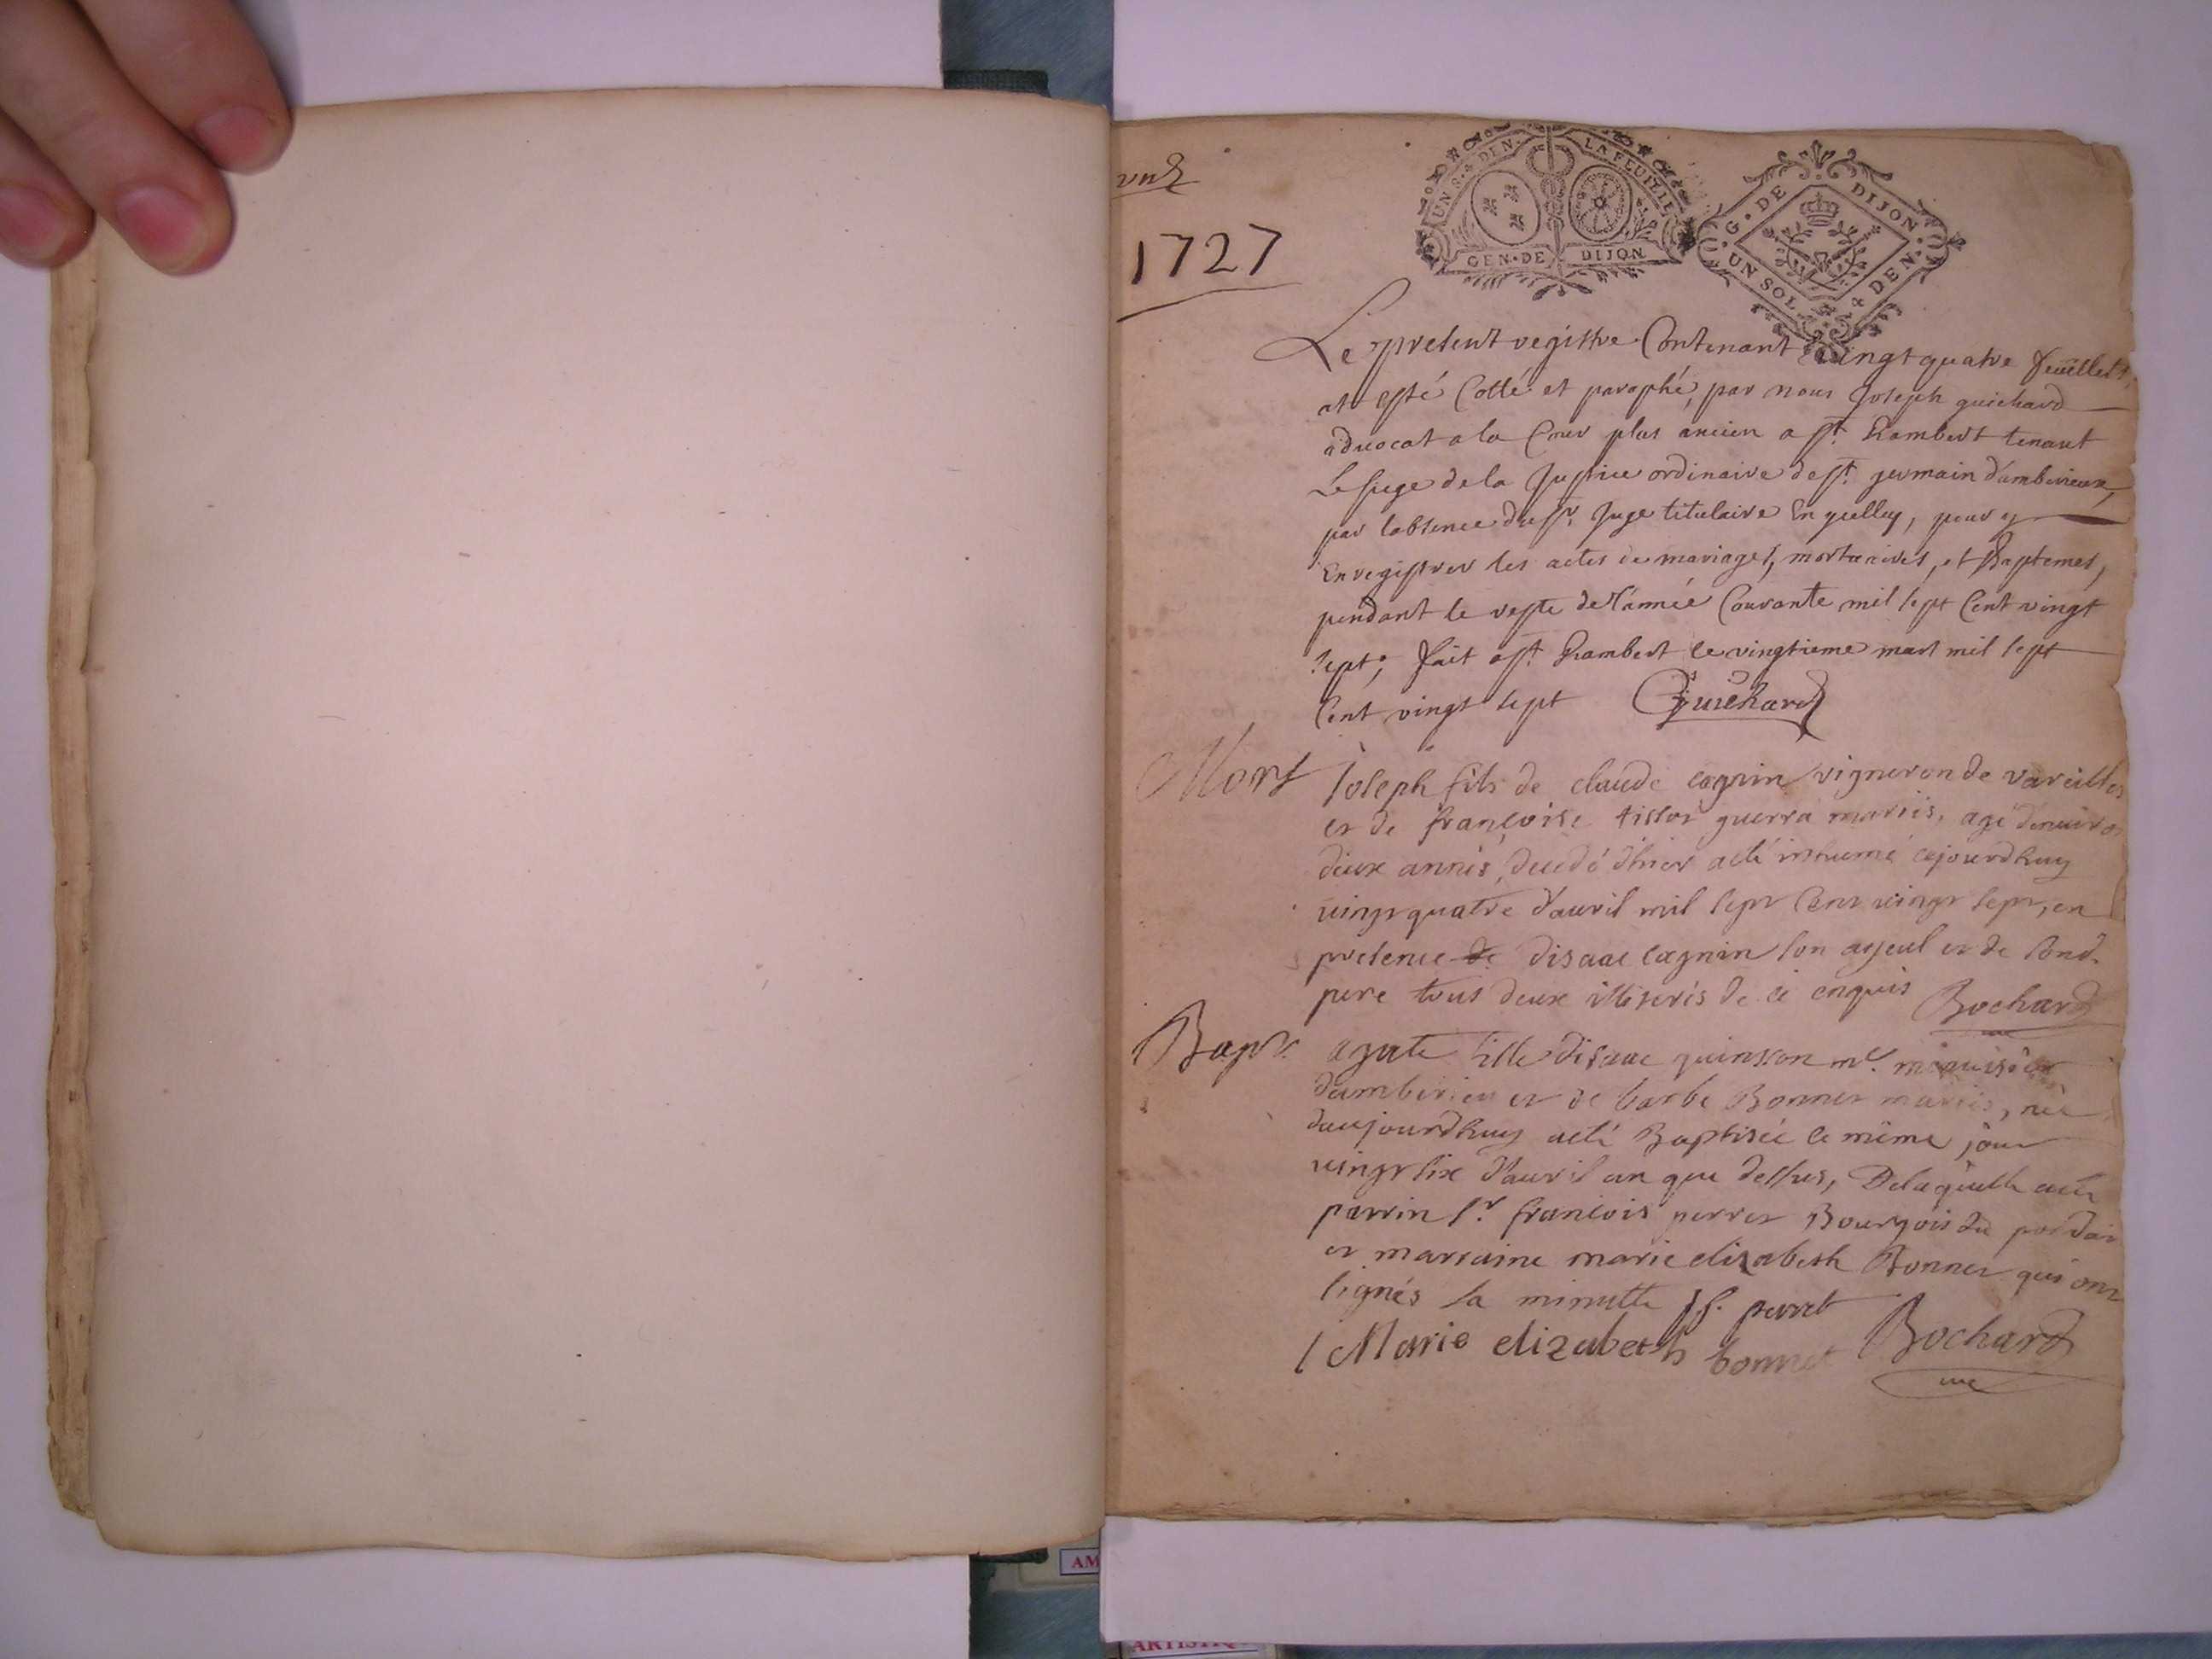 1727
UN S. 4 DEN. LA FEUILLE
GEN. DE DIJON
G. DE DIJON
UN SOL 4 DEN.
Le present registre Contenant vingt quatre feuillets,
at esté Cotté et paraphé, par nous Joseph guichard
advocat a la Cour plus ancien a st. Rambert tenant
le siege de la Justice ordinaire de st. germain d'amberieux,
par labsence du sr. Juge titulaire En ycelluy, pour y
Enregistrer les actes de mariages, mortuaires, et Baptemes,
pendant le reste de l'année Courante mil sept Cent vingt
sept; fait a st. Rambert le vingtieme mars mil sept
Cent vingt sept Guichard
Mort
Joseph fils de claude cagnin vigneron de vareilles
et de françoise tissot guerra mariés, agé denviron
deux annés, decedé d'hier a été inhumé cejourdhuy
vingt quatre d'avril mil sept Cent vingt sept, en
presence de disaac cagnin son ayeul et de sond.
pere tous deux illiterés de ce enquis Bochard
Bapt.
agate fille disaac quinson me. menuisier
damberieu et de barbe Bonnet mariés, née
daujourdhuy a été Baptisée le même jour
vingt six d'avril an que dessus, De laquelle a été
parrin sr. francois perret Bourgois du
et marraine marie elizabeth Bonnet qui ont
signés la minutte J f. perret
Marie elizabeth bonnet Bochard
curé
AM
ARTISTIQ